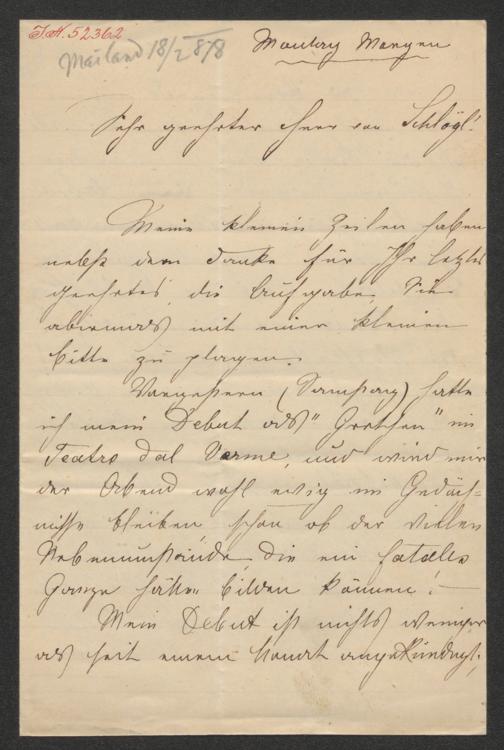 I.N. 52362
Mailand 18/2 878
Montag Morgen
Sehr geehrter Herr von Schlögl!
Meine kleinen Zeilen haben
nebst dem Danke für Ihr letztes
geehrtes, die Aufgabe, Sie
abermals mit einer kleinen
Bitte zu plagen.
Vorgestern (Samstag) hatte
ich mein Debut als "Gretchen" im
Teatro dal Verme, und wird mir
der Abend wohl ewig im Gedäch-
nisse bleiben, schon ob der vielen
Nebenumstände, die ein fatales
Ganze hätten bilden können! —
Mein Debut ist nichts weniger
als seit einem Monat angekündigt,